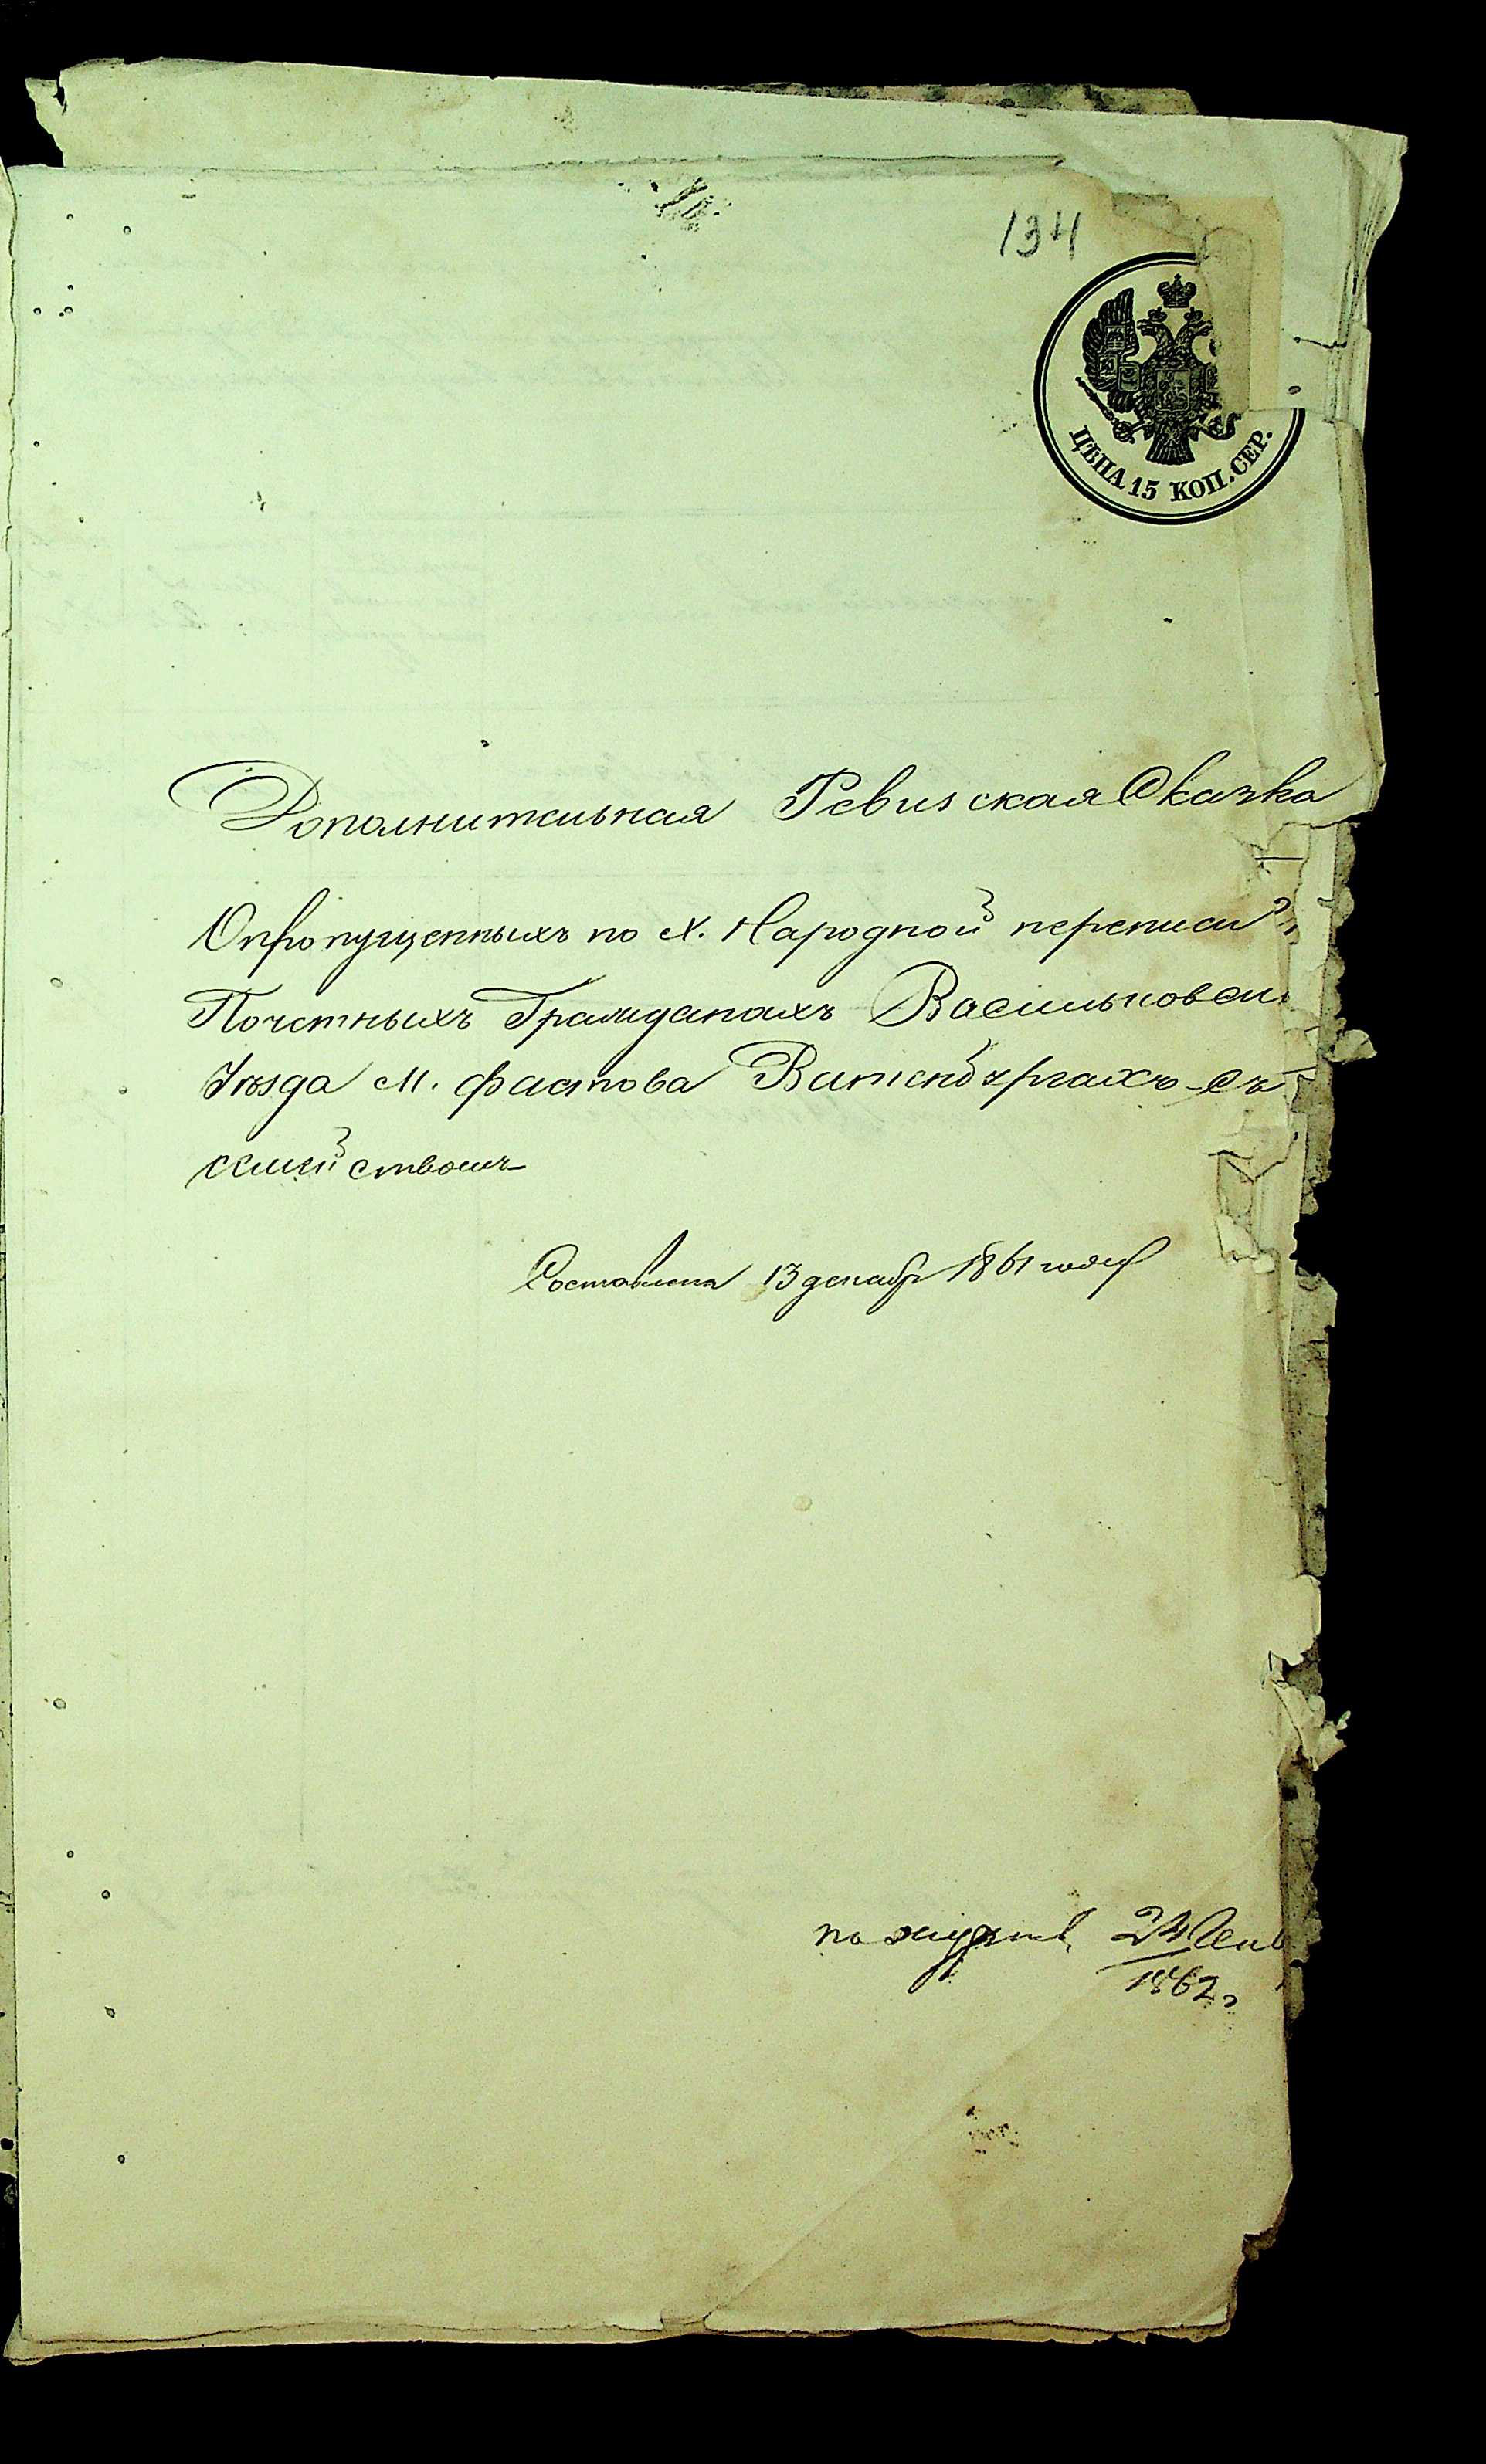 134
ЦѢНА 15 КОП. СЕР.
Дополнительная Ревизская Сказка
О пропущенныхъ по X. Народной переписи
Почетныхъ Гражданахъ Васильковск
Уѣзда М. Фастова Витенбургахъ съ
семействомъ
Составлена 13 декабр 1861 года
по журналу 24
1862 г